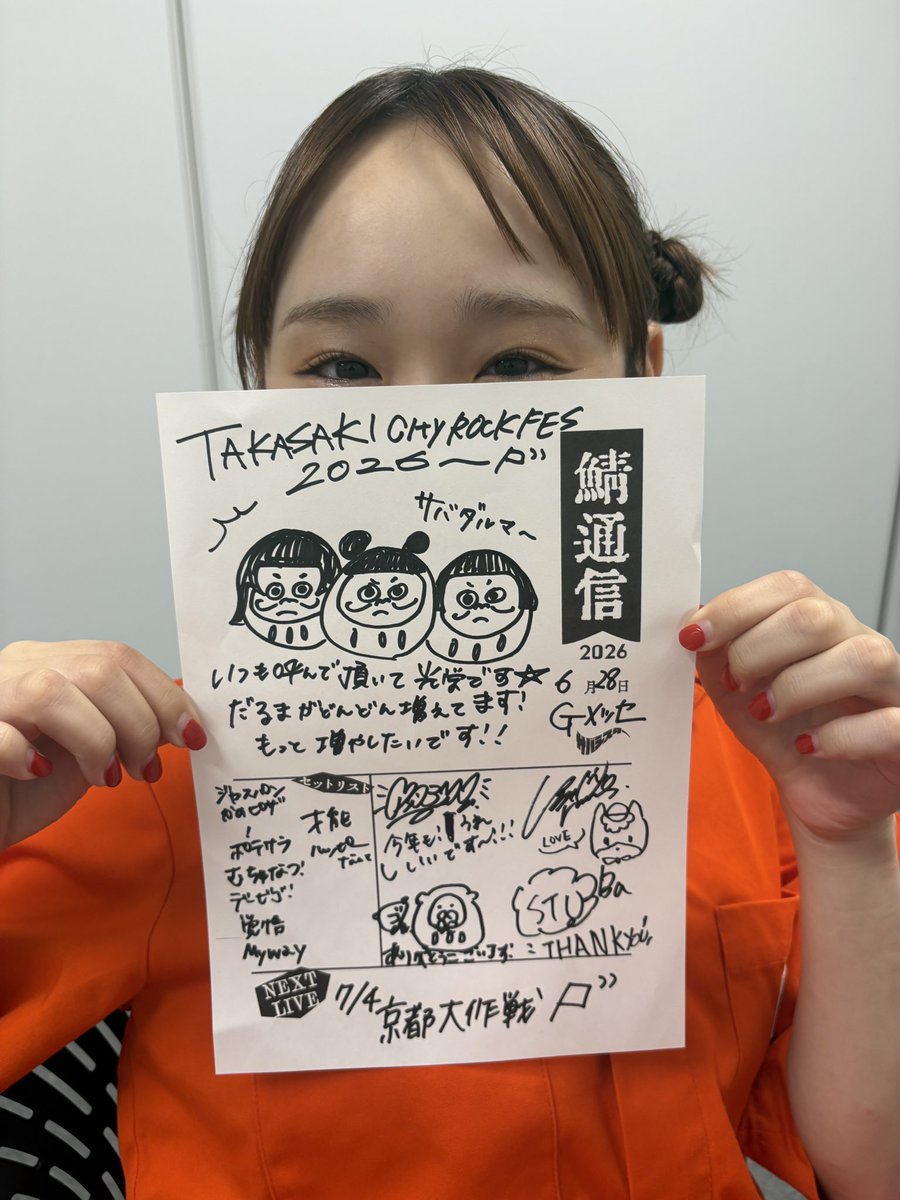 TAKASAKI CITY ROCK FES
2026〜
サバダルマ〜
鯖通信
2026
6月28日
Gメッセ
いつも呼んで頂いて光栄です☆
だるまがどんどん増えてます!
もっと増やしたいです!!
セットリスト
ジャスパー
ポテサラ
むちゅなつ!
テレビゴ!
覚悟
Myway
才能
ハッピー
なんて
今年も!うれ
しいです〜!!!
LOVE
ありがとうございます
STU
Ba
THANK YOU
NEXT
LIVE
7/4 京都大作戦